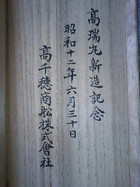 高瑞丸新造記念
昭和十二年六月三十日
高千穂商船株式會社